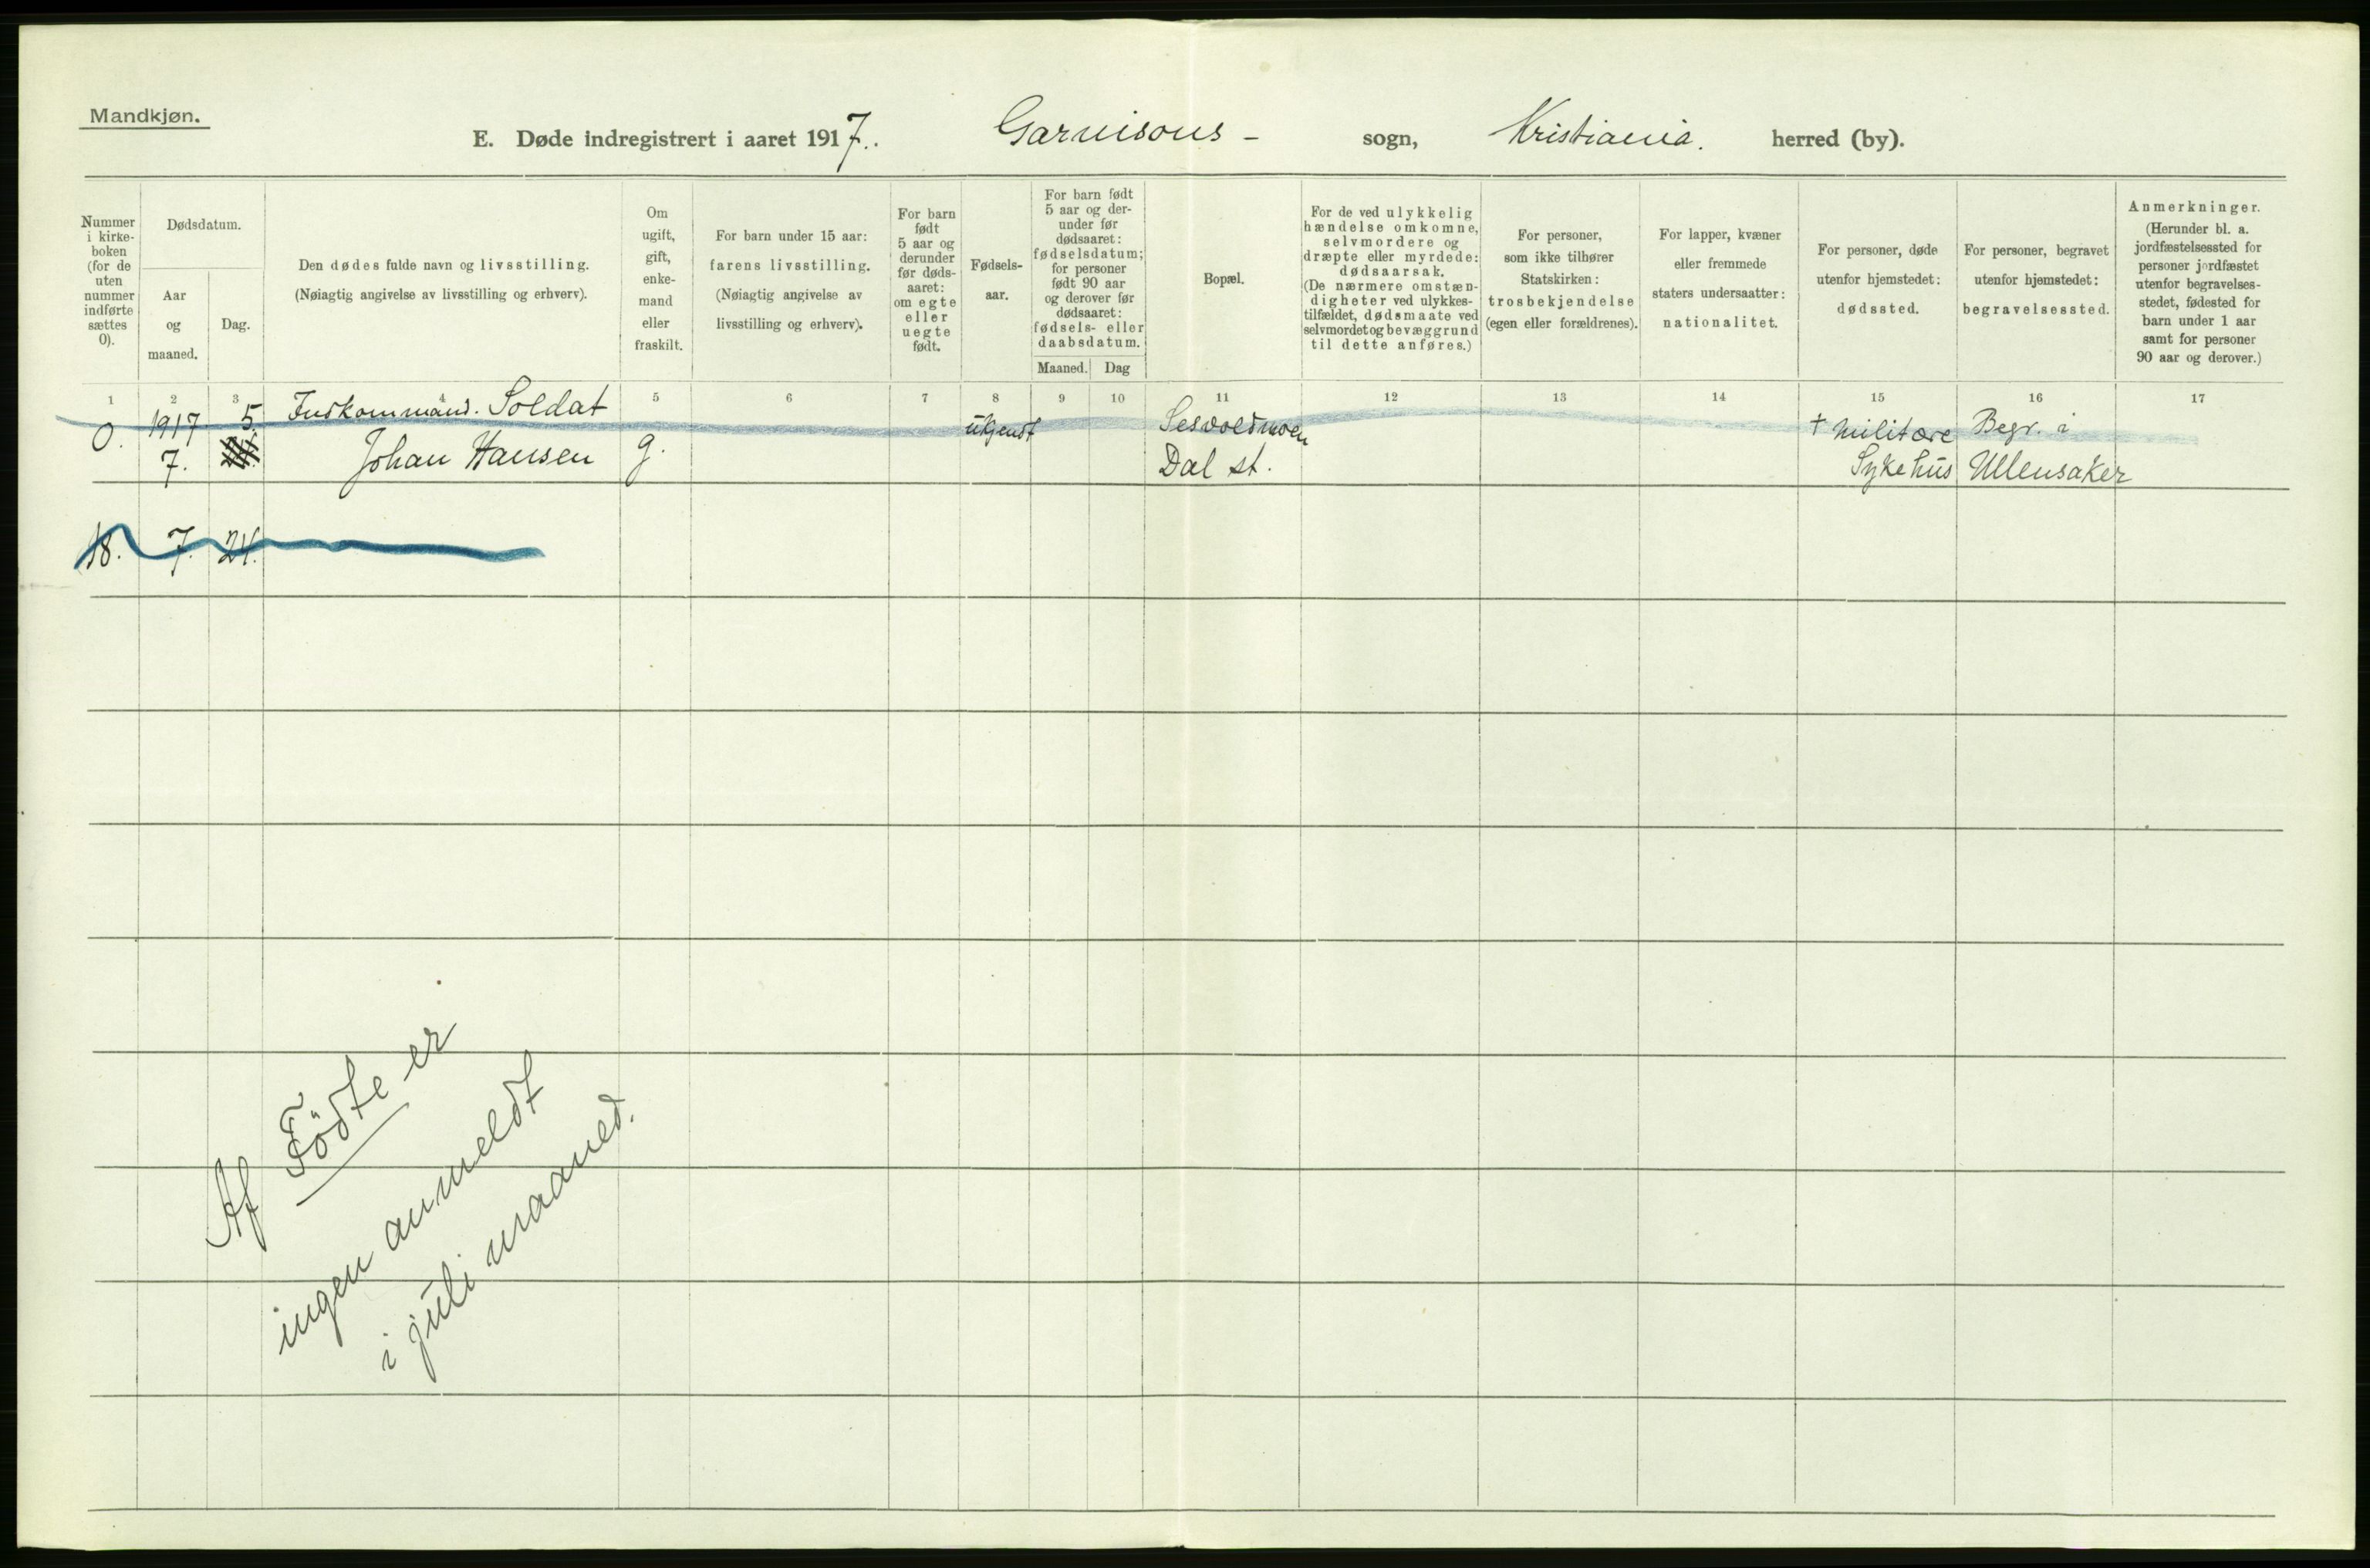 Mandkjøn.
E. Døde indregistrert i aaret 1917. Garnisons - sogn, Kristiania. herred (by).
Nummer
i kirke-
boken
(for de
uten
nummer
indførte
sættes
0).
Dødsdatum.
Aar
og
maaned.
Dag.
Den dødes fulde navn og livsstilling.
(Nøiagtig angivelse av livsstilling og erhverv).
Om
ugift,
gift,
enke-
mand
eller
fraskilt.
For barn under 15 aar:
farens livsstilling.
(Nøiagtig angivelse av
livsstilling og erhverv).
For barn
født
5 aar og
derunder
før døds-
aaret:
om egte
eller
uegte
født.
Fødsels-
aar.
For barn født
5 aar og der-
under før
dødsaaret:
fødselsdatum;
for personer
født 90 aar
og derover før
dødsaaret:
fødsels- eller
daabsdatum.
Maaned. Dag
Bopæl.
For de ved ulykkelig
hændelse omkomne,
selvmordere og
dræpte eller myrdede:
dødsaarsak.
(De nærmere omstæn-
digheter ved ulykkes-
tilfældet, dødsmaate ved
selvmordet og bevæggrund
til dette anføres.)
For personer,
som ikke tilhører
Statskirken:
trosbekjendelse
(egen eller forældrenes).
For lapper, kvæner
eller fremmede
staters undersaatter:
nationalitet.
For personer, døde
utenfor hjemstedet:
dødssted.
For personer, begravet
utenfor hjemstedet:
begravelsessted.
Anmerkninger.
(Herunder bl. a.
jordfæstelsessted for
personer jordfæstet
utenfor begravelses-
stedet, fødested for
barn under 1 aar
samt for personer
90 aar og derover.)
1 2 3 4 5 6 7 8 9 10 11 12 13 14 15 16 17
0. 1917 5. Indkommand. Soldat ukjendt Sesvoldmoen † militære Begr. i
7. Johan Hansen g. Dal st. Sykehus Ullensaker
18. 7. 24.
Af Födte er
ingen anmeldt
i juli maaned.